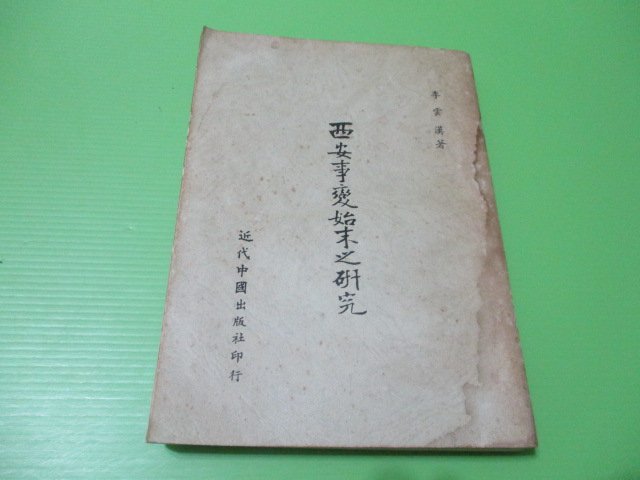 李雲漢著
西安事變始末之研究
近代中國出版社印行